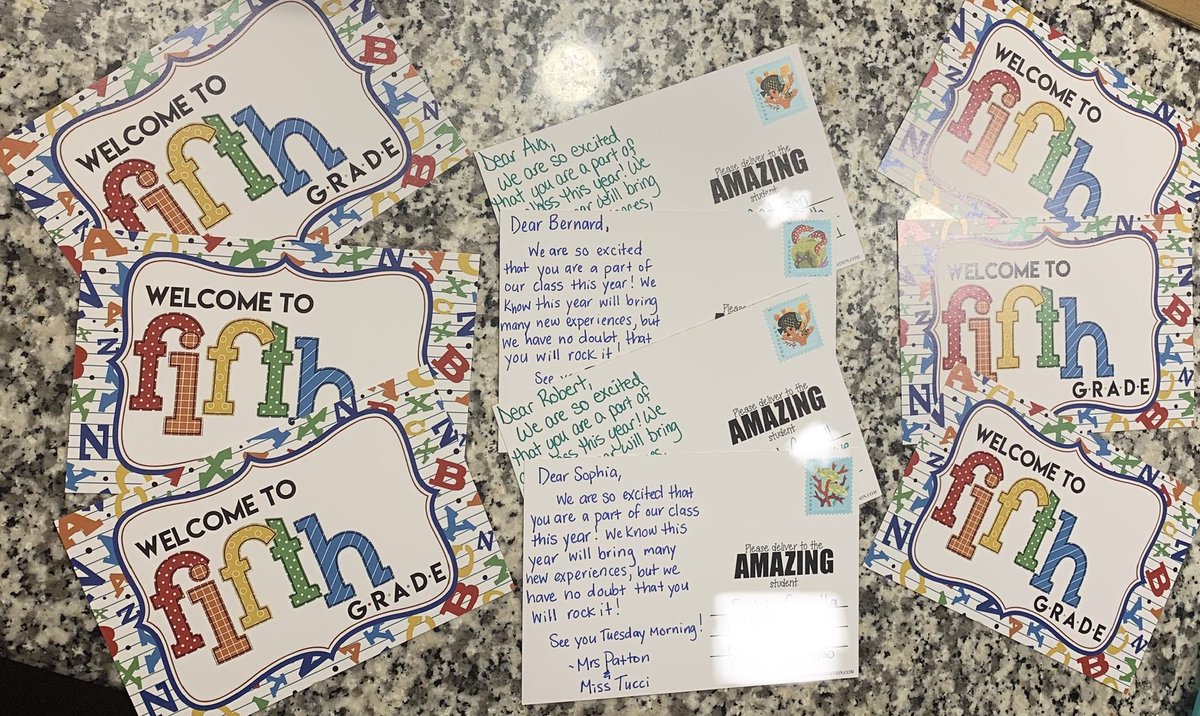 WELCOME TO
fifth
GRADE
WELCOME TO
fifth
WELCOME TO
fifth
G·R·A·D·E
Dear Ava,
We are so excited
that you are a part of
this year! We
year will bring
Please deliver to the
AMAZING
student
Dear Bernard,
We are so excited
that you are a part of
our class this year! We
Know this year will bring
many new experiences, but
we have no doubt that
you will rock it!
See
Please
Dear Robert,
We are so excited
that you are a part of
this year! We
will bring
Please deliver to the
AMAZING
student
Dear Sophia,
We are so excited that
you are a part of our class
this year! We Know this
year will bring many
new experiences, but we
have no doubt that you
will rock it!
See you Tuesday Morning!
~Mrs Patton
&
Miss Tucci
Please deliver to the
AMAZING
student
WELCOME TO
fifth
GRADE
WELCOME TO
fifth
G·R·A·D·E
WELCOME TO
fifth
G·R·A·D·E